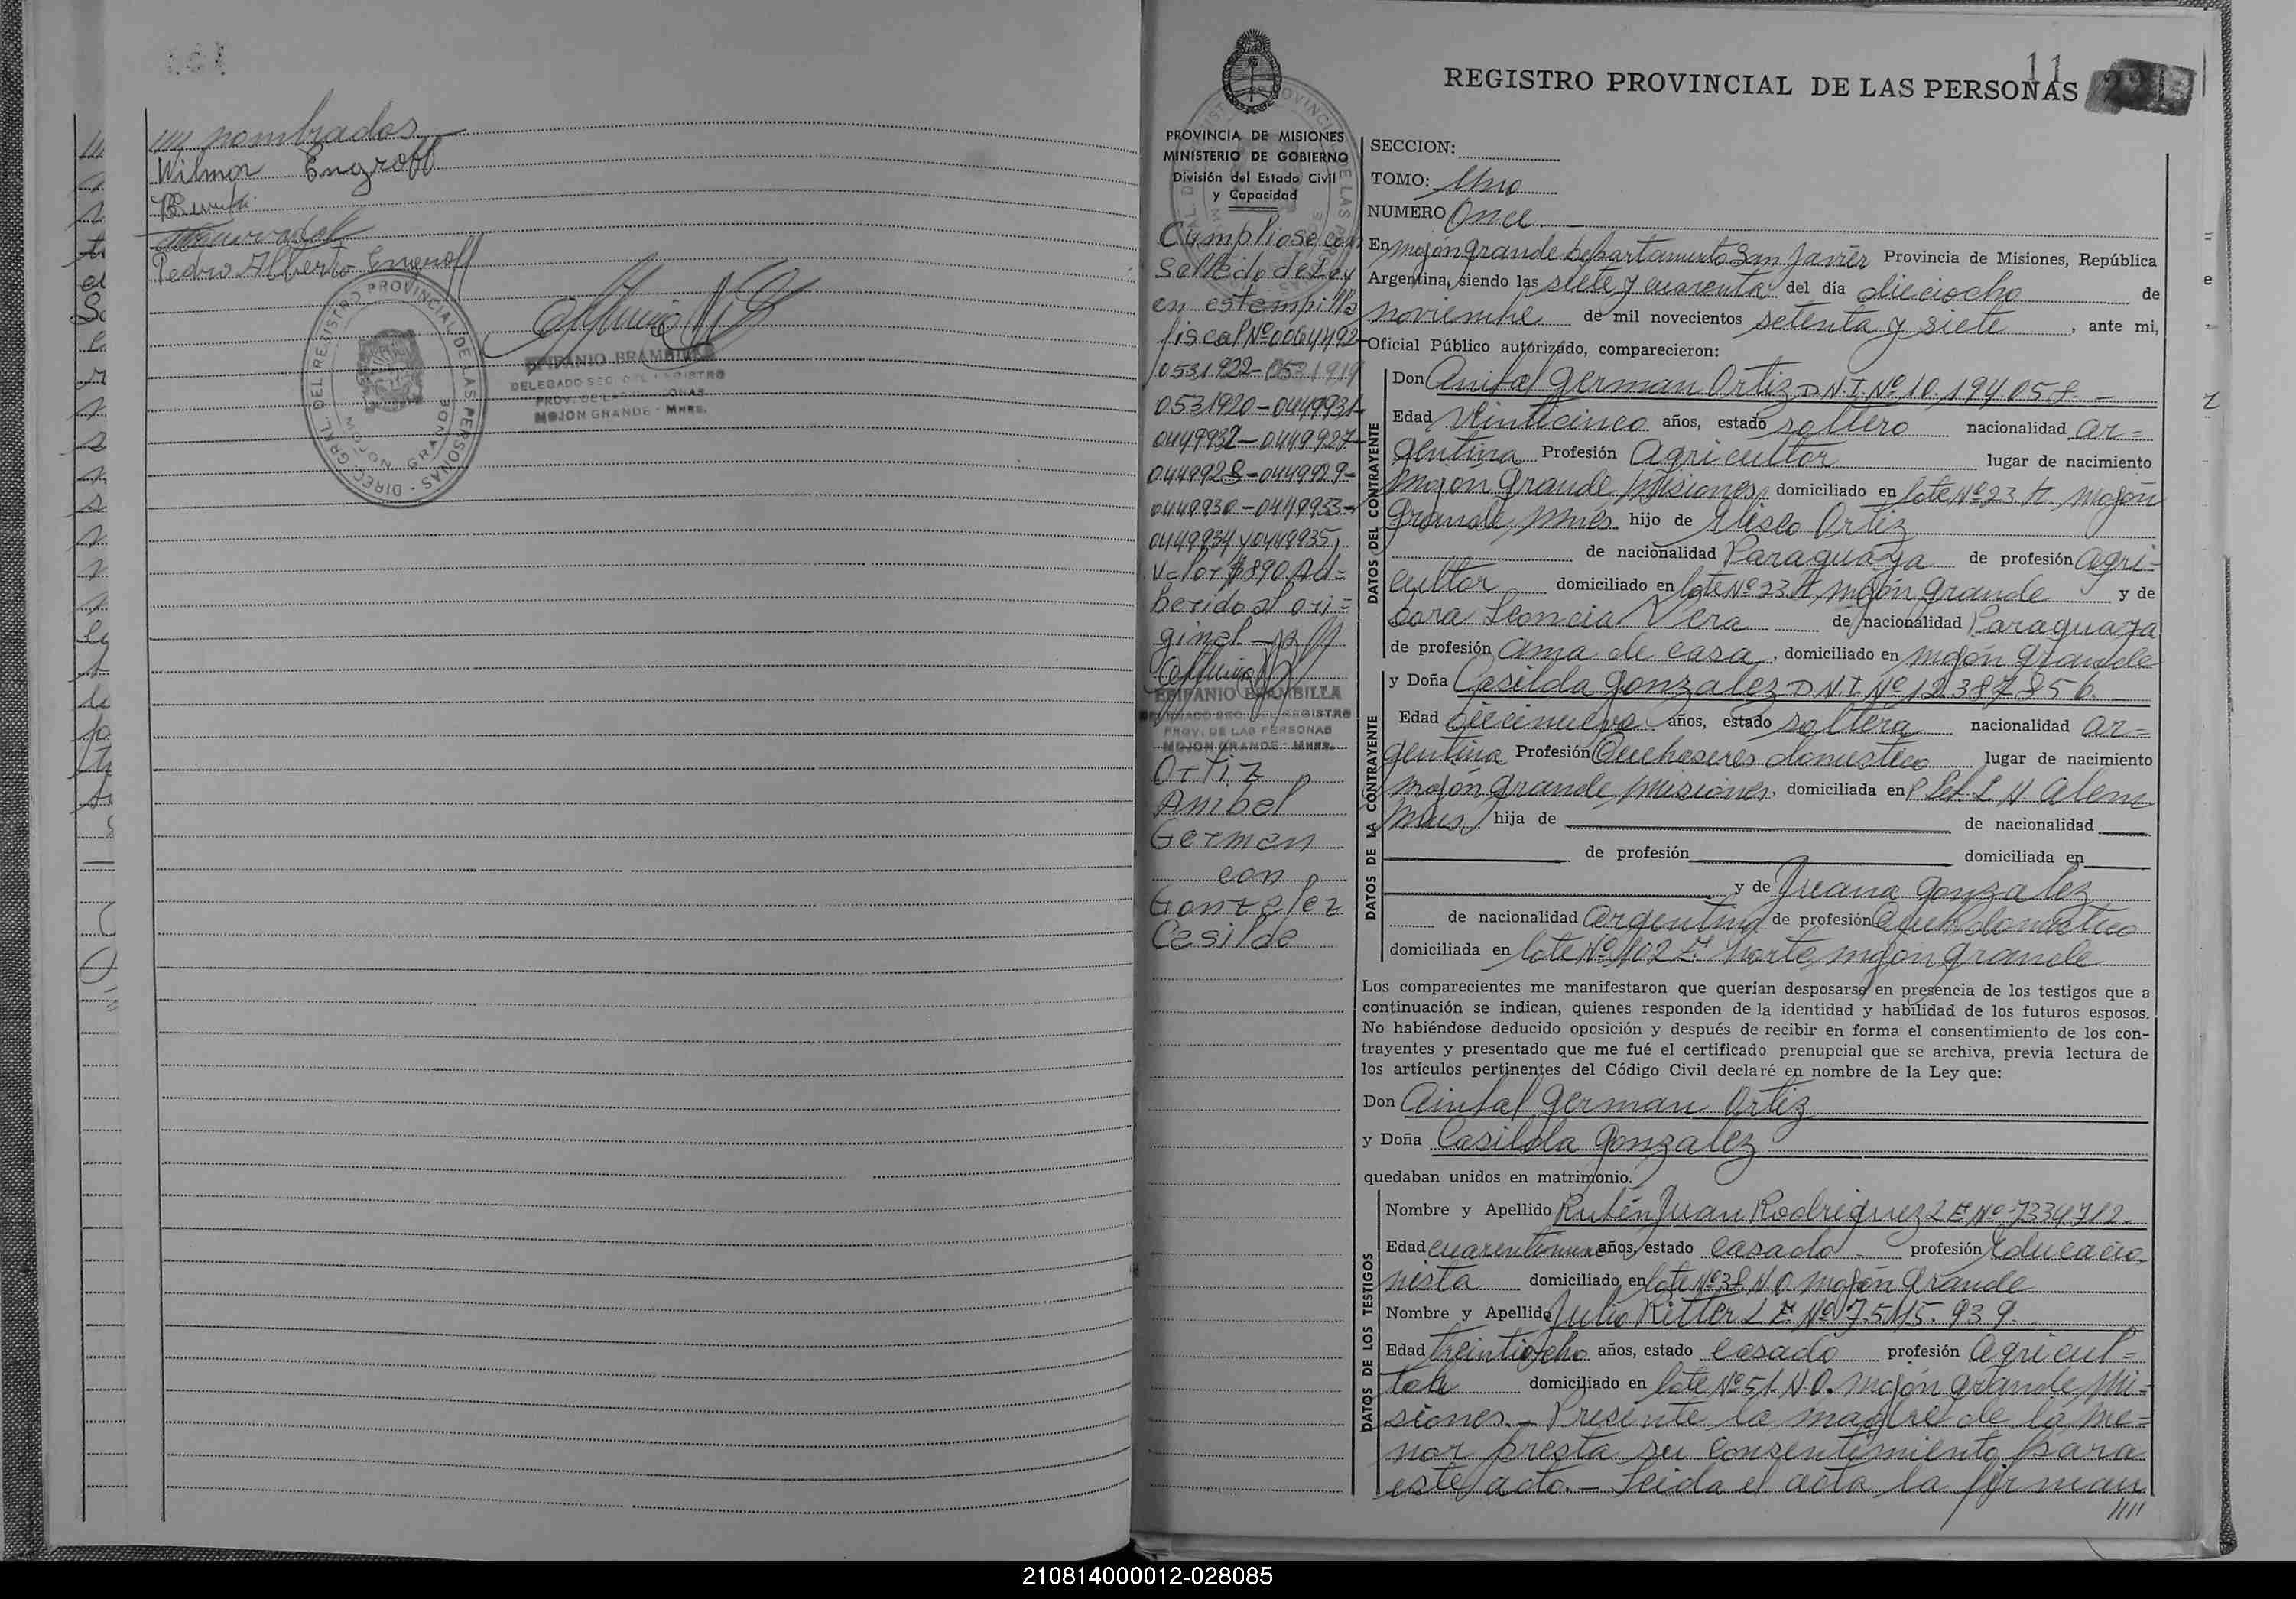 //// nombrados
Wilmar Engroff
Pedro Alberto Engroff
DIREC. GRAL. DEL REGISTRO PROVINCIAL DE LAS PERSONAS
MOJON GRANDE
EPIFANIO BRAMBILLA
DELEGADO SEC. DEL REGISTRO
PROV. DE LAS PERSONAS
MOJON GRANDE - MNES.
11
REGISTRO PROVINCIAL DE LAS PERSONAS
PROVINCIA DE MISIONES
MINISTERIO DE GOBIERNO
División del Estado Civil
y Capacidad
Cumpliose con
Sellado de Ley
en estampilla
fiscal Nº 0064492-
0531922-0531919
0531920-0449931-
0449932-0449927-
0449928-0449929-
0449930-0449933-
0449934 y 0449935,
Valor $890 Ad=
herido al ori=
ginal
EPIFANIO BRAMBILLA
DELEGADO SEC. DEL REGISTRO
PROV. DE LAS PERSONAS
MOJON GRANDE - MNES.
Ortiz
Anibal
German
con
Gonzalez
Casilda
SECCION:
TOMO: Uno
NUMERO Once.
En Mojón Grande Departamento San Javier Provincia de Misiones, República
Argentina, siendo las siete y cuarenta del día dieciocho de
noviembre de mil novecientos setenta y siete, ante mi,
Oficial Público autorizado, comparecieron:
DATOS DEL CONTRAYENTE
Don Anibal German Ortiz D.N.I. Nº 10.194.058.-
Edad veinticinco años, estado soltero nacionalidad ar=
gentina Profesión Agricultor lugar de nacimiento
Mojón Grande Misiones, domiciliado en lote Nº 23 A, Mojón
Grande, Mnes. hijo de Eliseo Ortiz
de nacionalidad Paraguaya de profesión agri-
cultor domiciliado en lote Nº 23 A, Mojón Grande y de
Leoncia Vera de nacionalidad Paraguaya
de profesión ama de casa, domiciliado en Mojón Grande
DATOS DE LA CONTRAYENTE
y Doña Casilda Gonzalez D.N.I. Nº 12.387.856.
Edad diecinueve años, estado soltera nacionalidad ar=
gentina Profesión Quehaseres domestico lugar de nacimiento
Mojón Grande Misiones, domiciliada en L. N. Alem
Mnes, hija de de nacionalidad
de profesión domiciliada en
y de Juana Gonzalez
de nacionalidad argentina de profesión Queh domestico
domiciliada en lote Nº 102 Norte, Mojón Grande
Los comparecientes me manifestaron que querían desposarse en presencia de los testigos que a
continuación se indican, quienes responden de la identidad y habilidad de los futuros esposos.
No habiéndose deducido oposición y después de recibir en forma el consentimiento de los con-
trayentes y presentado que me fué el certificado prenupcial que se archiva, previa lectura de
los artículos pertinentes del Código Civil declaré en nombre de la Ley que:
Don Anibal German Ortiz
y Doña Casilda Gonzalez
quedaban unidos en matrimonio.
DATOS DE LOS TESTIGOS
Nombre y Apellido Rubén Juan Rodriguez L E Nº 7334712.
Edad años, estado casado profesión educacio
nista domiciliado en lote Nº 38 N.O. Mojón Grande
Nombre y Apellido Julio Ritter L E. Nº 7.515.939.
Edad treintiocho años, estado casado profesión agricul=
tor domiciliado en lote Nº 51 N.O. Mojón Grande, Mi=
siones.- Presente la madre de la me=
nor presta su consentimiento para
este acto.- Leida el acta la firman
////
210814000012-028085